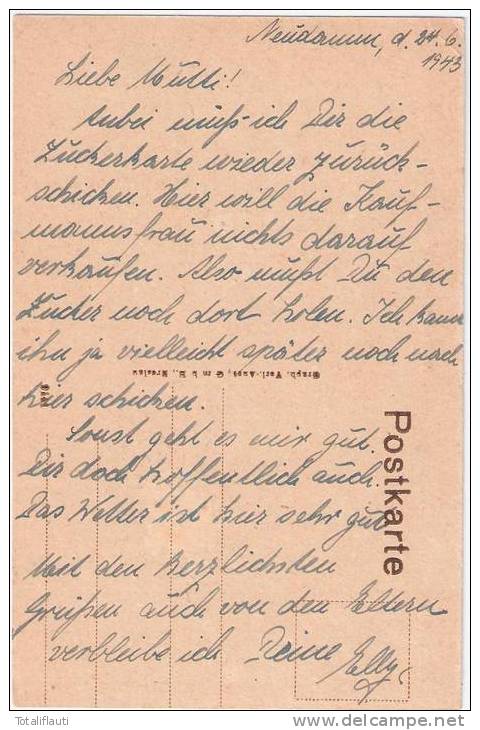 Neudamm, d. 24.6.
1943
Liebe Mutti!
Anbei muß ich Dir die
Zuckerkarte wieder zurück-
schicken. Hier will die Kauf-
mannsfrau nichts darauf
verkaufen. Also mußt Du den
Zucker noch dort holen. Ich kann
ihn ja vielleicht später noch nach
hier schicken.
Sonst geht es mir gut.
Dir doch hoffentlich auch.
Das Wetter ist hier sehr gut
Mit den herzlichsten
Grüßen auch von den Eltern
verbleibe ich Deine Elly
Postkarte
Graph. Verl.-Anst., G m b H., Breslau
Totaliflauti
www.delcampe.net